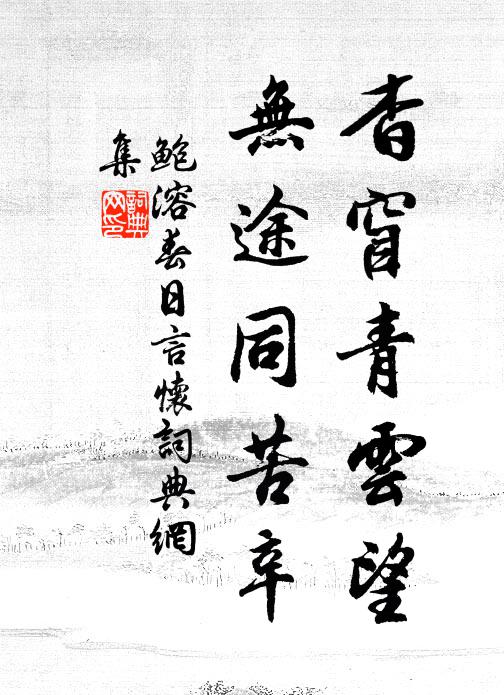 杳窅青雲望
無途同苦辛
鲍溶春日言懷詞典網
集
詞典
网印